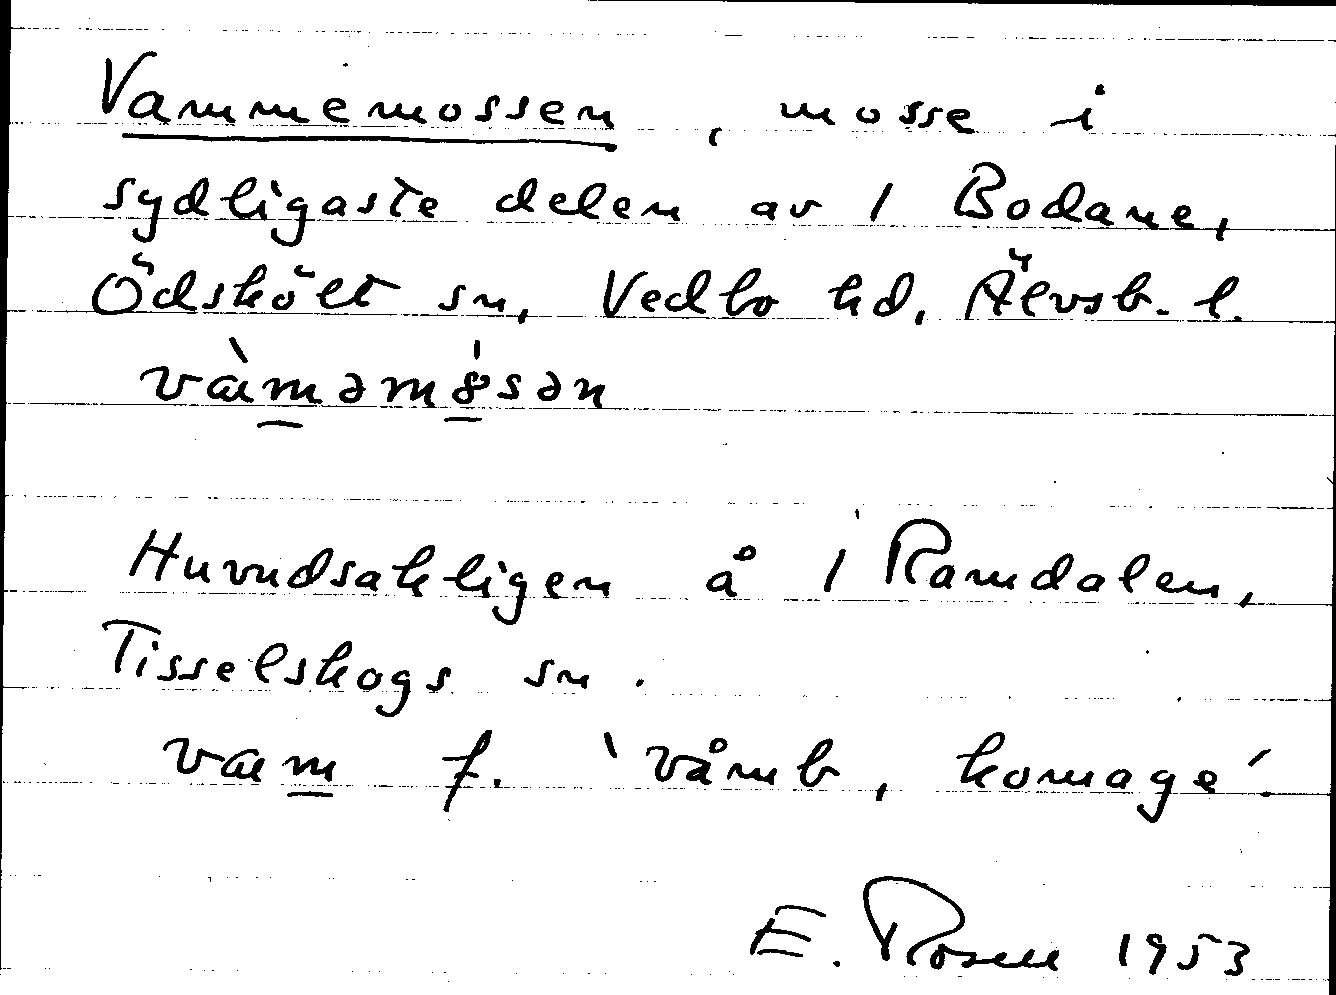 Vammemossen, mosse i
sydligaste delen av 1 Bodane,
Ödskölt sn, Vedbo hd, Älvsb. l.
Huvudsakligen å 1 Ramdalen,
Tisselskogs sn.
vam f. 'våmb, komage'.
E. Rosell 1953